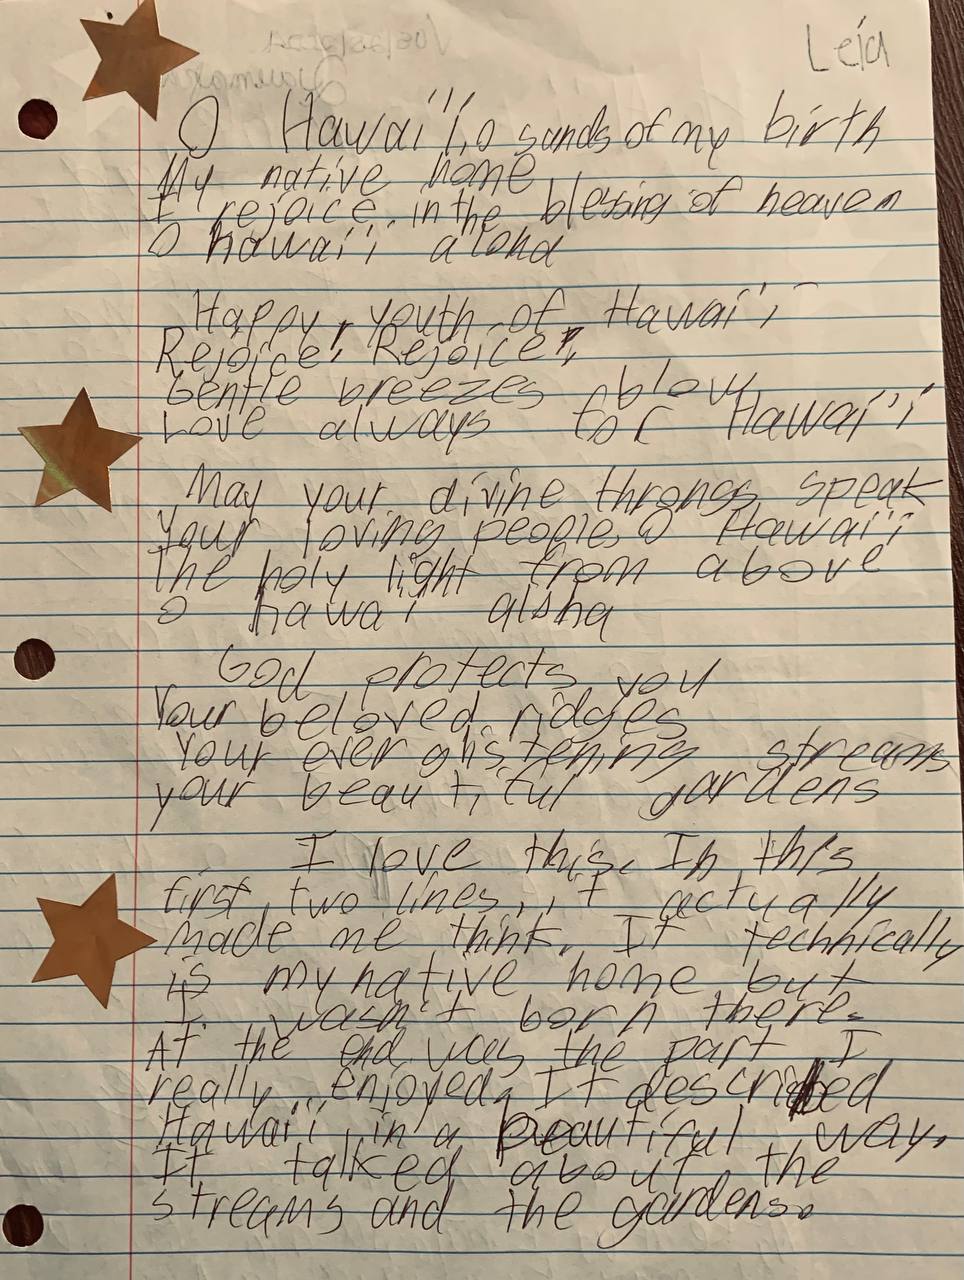 Leia
O Hawai'i, o sands of my birth
My native home
I rejoice in the blessing of heaven
O hawai'i aloha
Happy, youth of Hawai'i
Rejoice! Rejoice!
Gentle breezes blow
Love always for Hawai'i
May your divine throngs speak
Your loving people, O Hawai'i
The holy light from above
O hawai'i aloha
God protects you
Your beloved ridges
Your ever glistening streams
your beautiful gardens
I love this. In this
first two lines, it actually
made me think. It technically
is my native home but
I wasn't born there.
At the end was the part I
really enjoyed. It described
Hawaii in a beautiful way.
It talked about the
streams and the gardens.